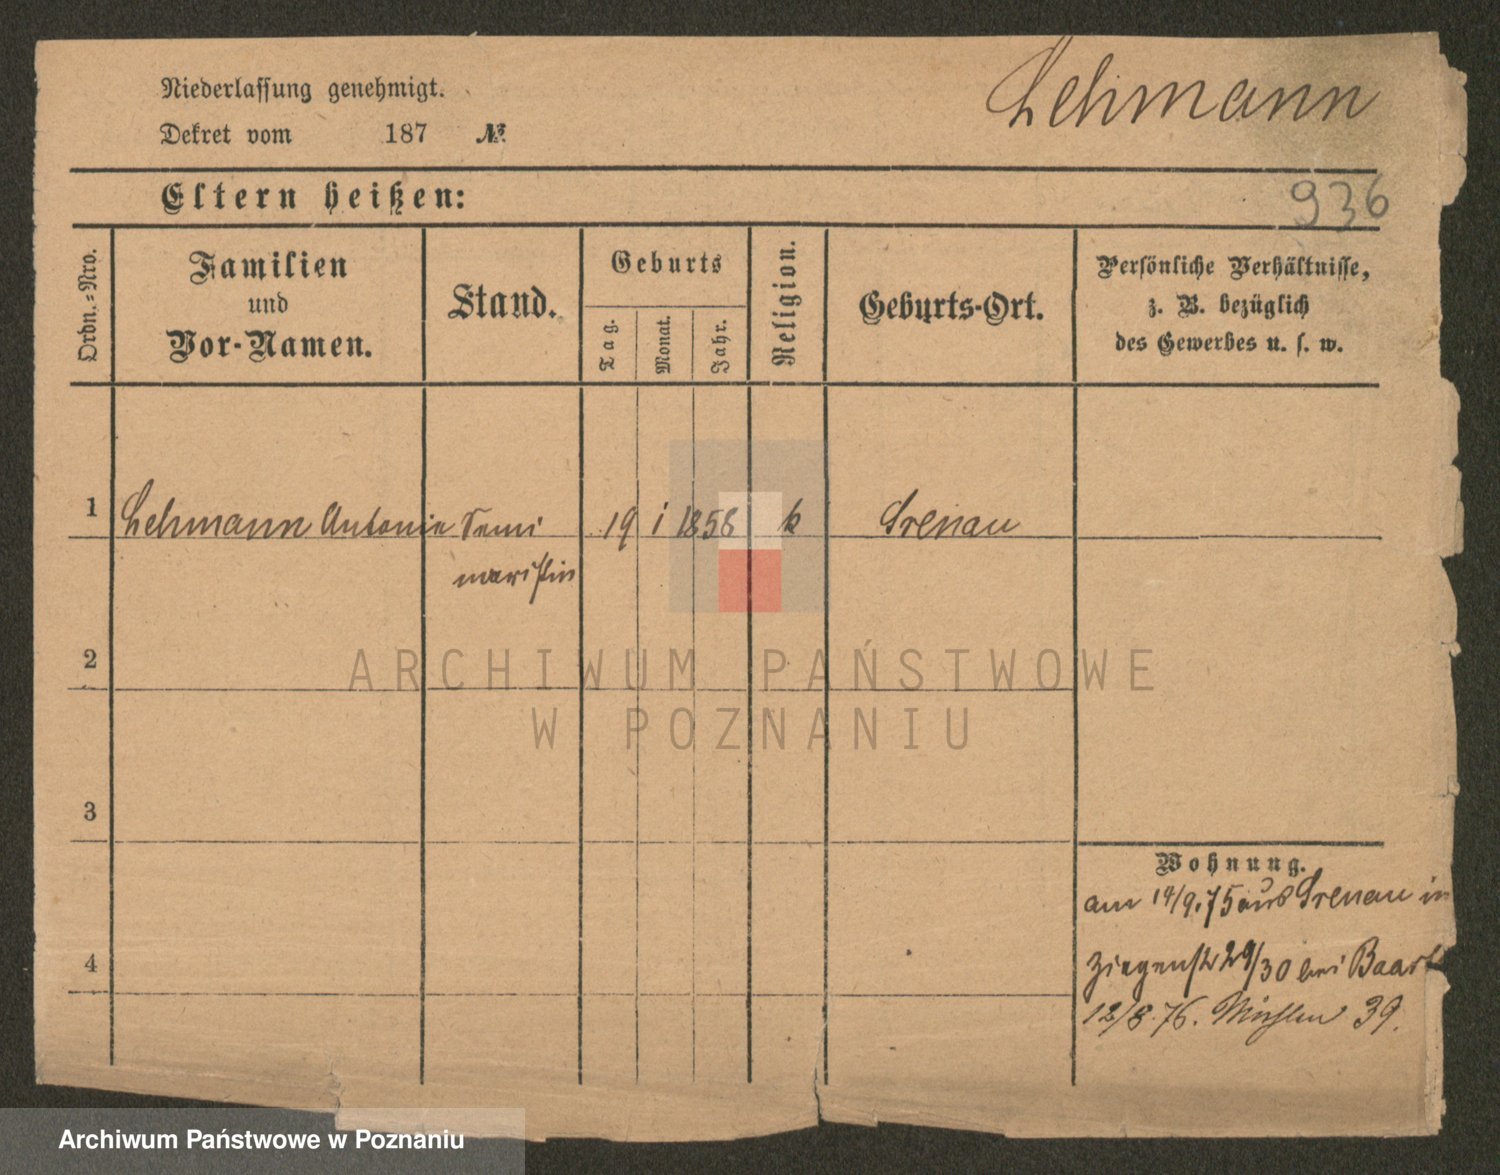 Niederlassung genehmigt.
Lehmann
Dekret vom 187 №
Eltern heißen:
936
Ordn.-Nro.
Familien
und
Vor-Namen.
Stand.
Geburts
Tag.
Monat.
Jahr.
Religion.
Geburts-Ort.
Persönliche Verhältnisse,
z. B. bezüglich
des Gewerbes u. s. w.
1 Lehmann Antonie Semi 19 1858 k
naristin
2
ARCHIWUM PAŃSTWOWE
W POZNANIU
3
Wohnung.
am 14/9.75 aus in
4
Ziegenstr 29/30 bei
12/8.76. 39.
Archiwum Państwowe w Poznaniu